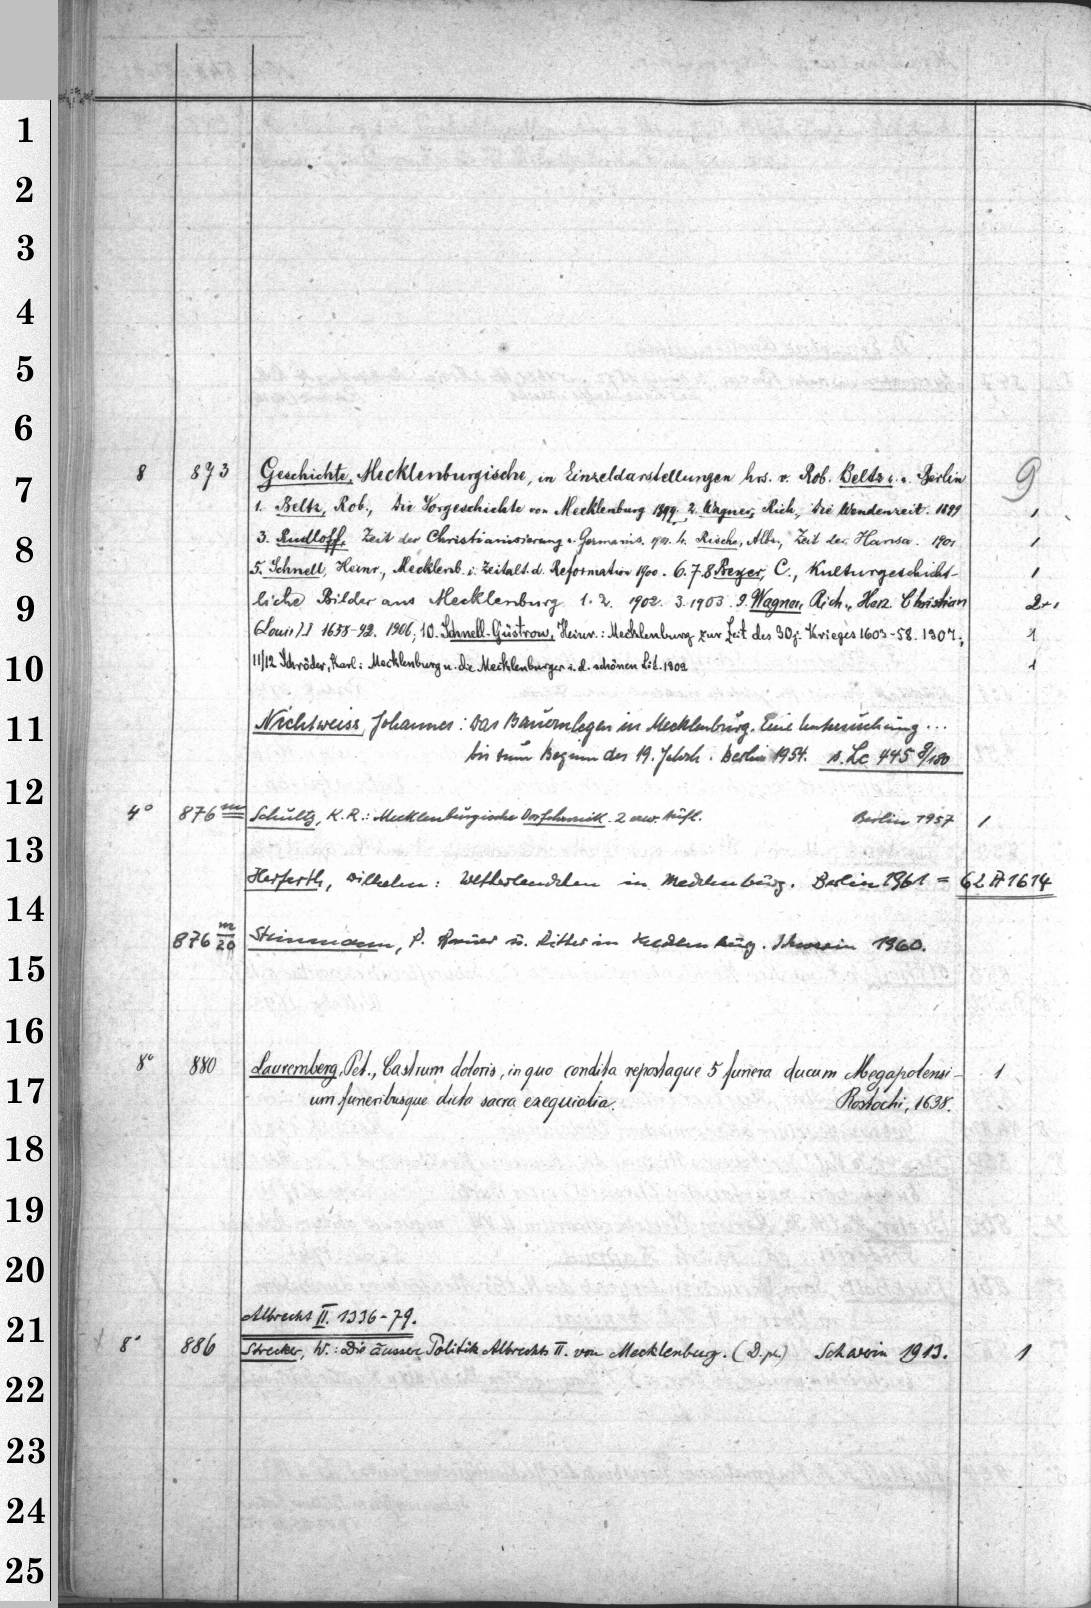 1
2
3
4
5
6
8 873 Geschichte, Mecklenburgische, in Einzeldarstellungen hrs. v. Rob. Beltz u. a. Berlin 9
7
1. Beltz, Rob., Die Vorgeschichte von Mecklenburg 1899. 2. Wagner, Rich., Die Wendenzeit. 1899 1
8
3. Rudloff, Zeit der Christianisierung u. Germanis. 4. Rische, Alfr., Zeit der Hansa. 1901 1
5. Schnell, Heinr., Mecklenb. i. Zeitalt. d. Reformation 1900. 6. 7. 8 Beyer, C., Kulturgeschicht- 1
9
liche Bilder aus Mecklenburg 1. 2. 1902. 3. 1903 9. Wagner, Rich., Herz. Christian 2+1
(Louis) I 1658-92. 1906, 10. Schnell-Güstrow, Heinr.: Mecklenburg zur Zeit des 30j. Krieges 1603-58. 1907. 1
10
11/12 Schröder, Karl: Mecklenburg u. die Mecklenburger i. d. schönen Lit. 1909 1
11
Nichtweiss, Johannes: Das Bauernlegen in Mecklenburg. Eine Untersuchung ...
bis zum Beginn des 19. Jahrh. Berlin 1954. s. Lc 445 8/180
12
4° 876 m Schultz, K. R.: Mecklenburgische Dorfchronik. 2 erw. Aufl. Berlin 1957 1
13
Herferth, Wilhelm: in Mecklenburg. Berlin 1961 = 62 A 1614
14
876 m/20 Steinmann, P. Bauer u. Ritter in Mecklenburg. Schwerin 1960.
15
16
8° 880 Lauremberg, Pet., Castrum doloris, in quo condita repostaque 5 funera ducum Megapolensi- 1
17
um funeribusque dicta sacra exequialia. Rostochi, 1638.
18
19
20
Albrecht II. 1336-79.
21
8° 886 Strecker, W.: Die äussere Politik Albrechts II. von Mecklenburg. (D. ph.) Schwerin 1913. 1
22
23
24
25